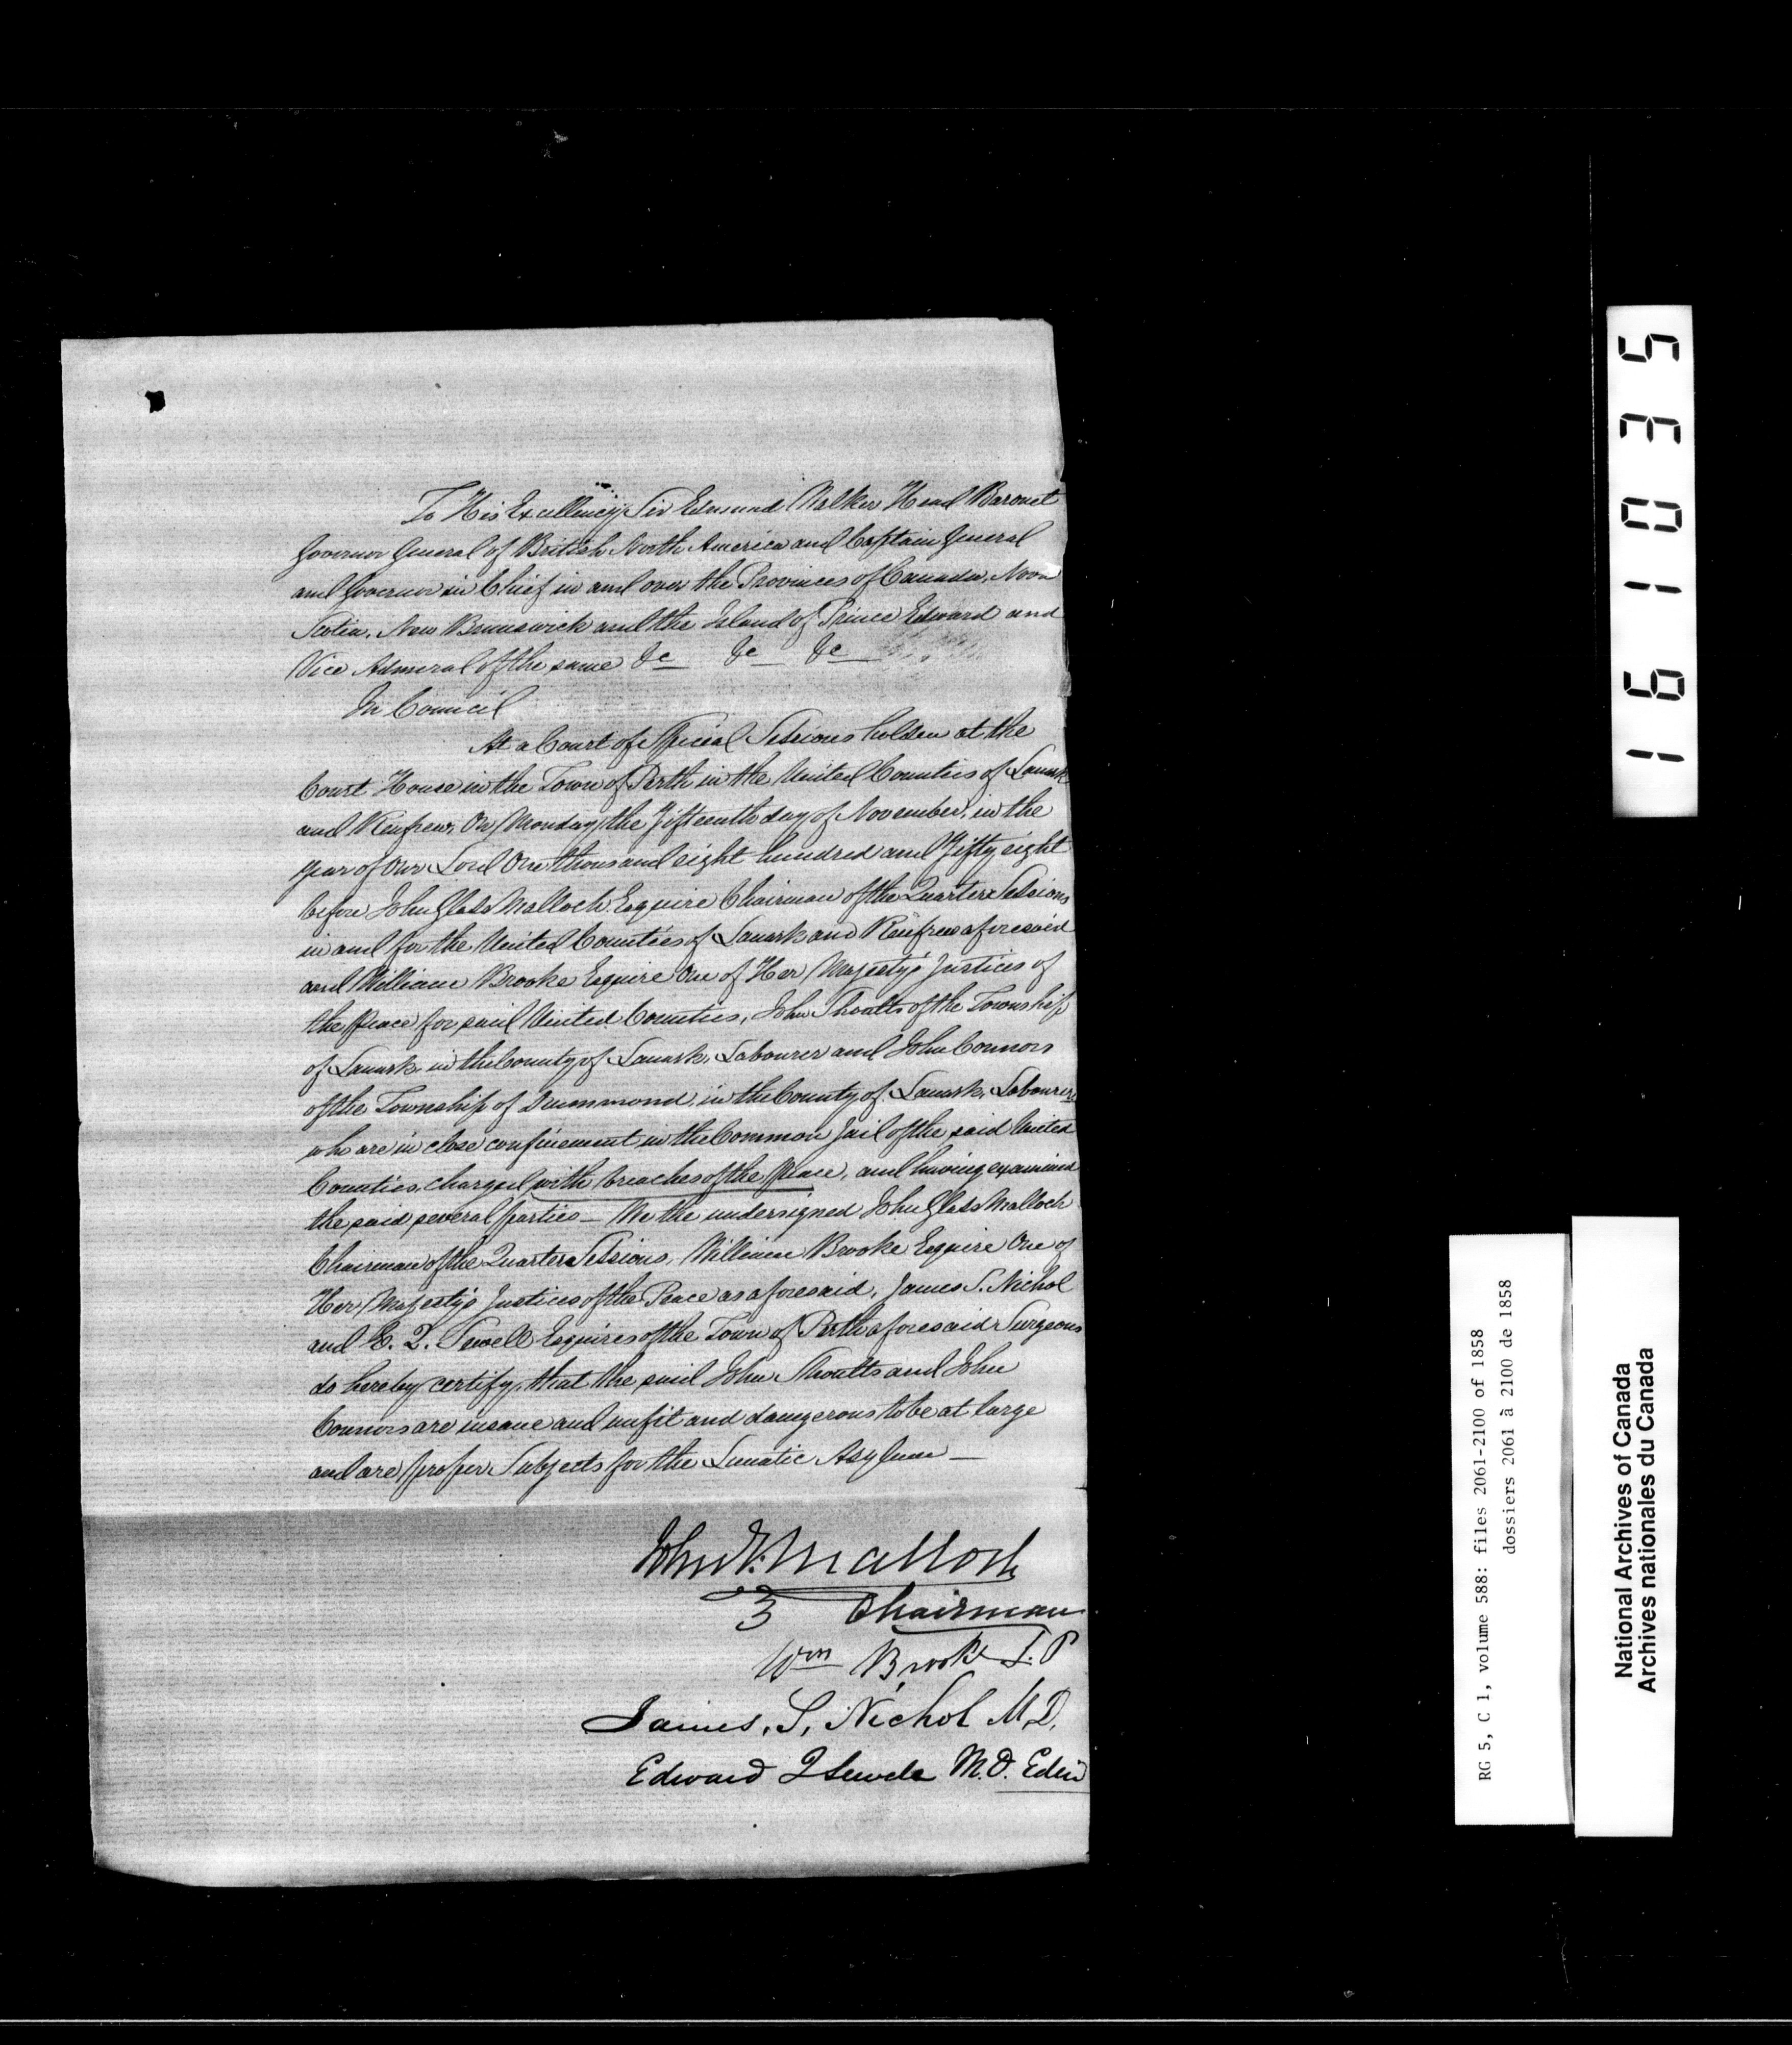 To His Excellency Sir Edmund Walker Head Baronet
Governor General of British North America and Captain General
and Governor in Chief in and over the Provinces of Canada, Nova
Scotia, New Brunswick and the Island of Prince Edward and
Vice Admiral of the same &c &c &c
In Council
At a Court of Special Sessions holden at the
Court House in the Town of Perth in the United Counties of Lanark
and Renfrew, On Monday the Fifteenth day of November, in the
year of Our Lord One thousand eight hundred and Fifty eight
before John Glass Malloch Esquire Chairman of the Quarter Sessions
in and for the United Counties of Lanark and Renfrew aforesaid
and William Brooke Esquire One of Her Majesty's Justices of
the Peace for said United Counties, John Shoults of the Township
of Lanark, in the County of Lanark, Labourer and John Connors
of the Township of Drummond, in the County of Lanark, Labourer
who are in close confinement in the Common Jail of the said United
Counties, charged with breaches of the Peace, and having examined
the said several parties — We the undersigned John Glass Malloch
Chairman of the Quarter Sessions, William Brooke Esquire One of
Her Majesty's Justices of the Peace as aforesaid, James S. Nichol
and E. Q. Sewell Esquires of the Town of Perth aforesaid Surgeons
do hereby certify, that the said John Shoults and John
Connors are insane and unfit and dangerous to be at large
and are proper Subjects for the Lunatic Asylum —
John G. Malloch
Chairman
Wm Brooke J.P
James, S, Nichol M,D,
Edward Q Sewell M.D. Edin
161035
RG 5, C 1, volume 588: files 2061-2100 of 1858
dossiers 2061 à 2100 de 1858
National Archives of Canada
Archives nationales du Canada